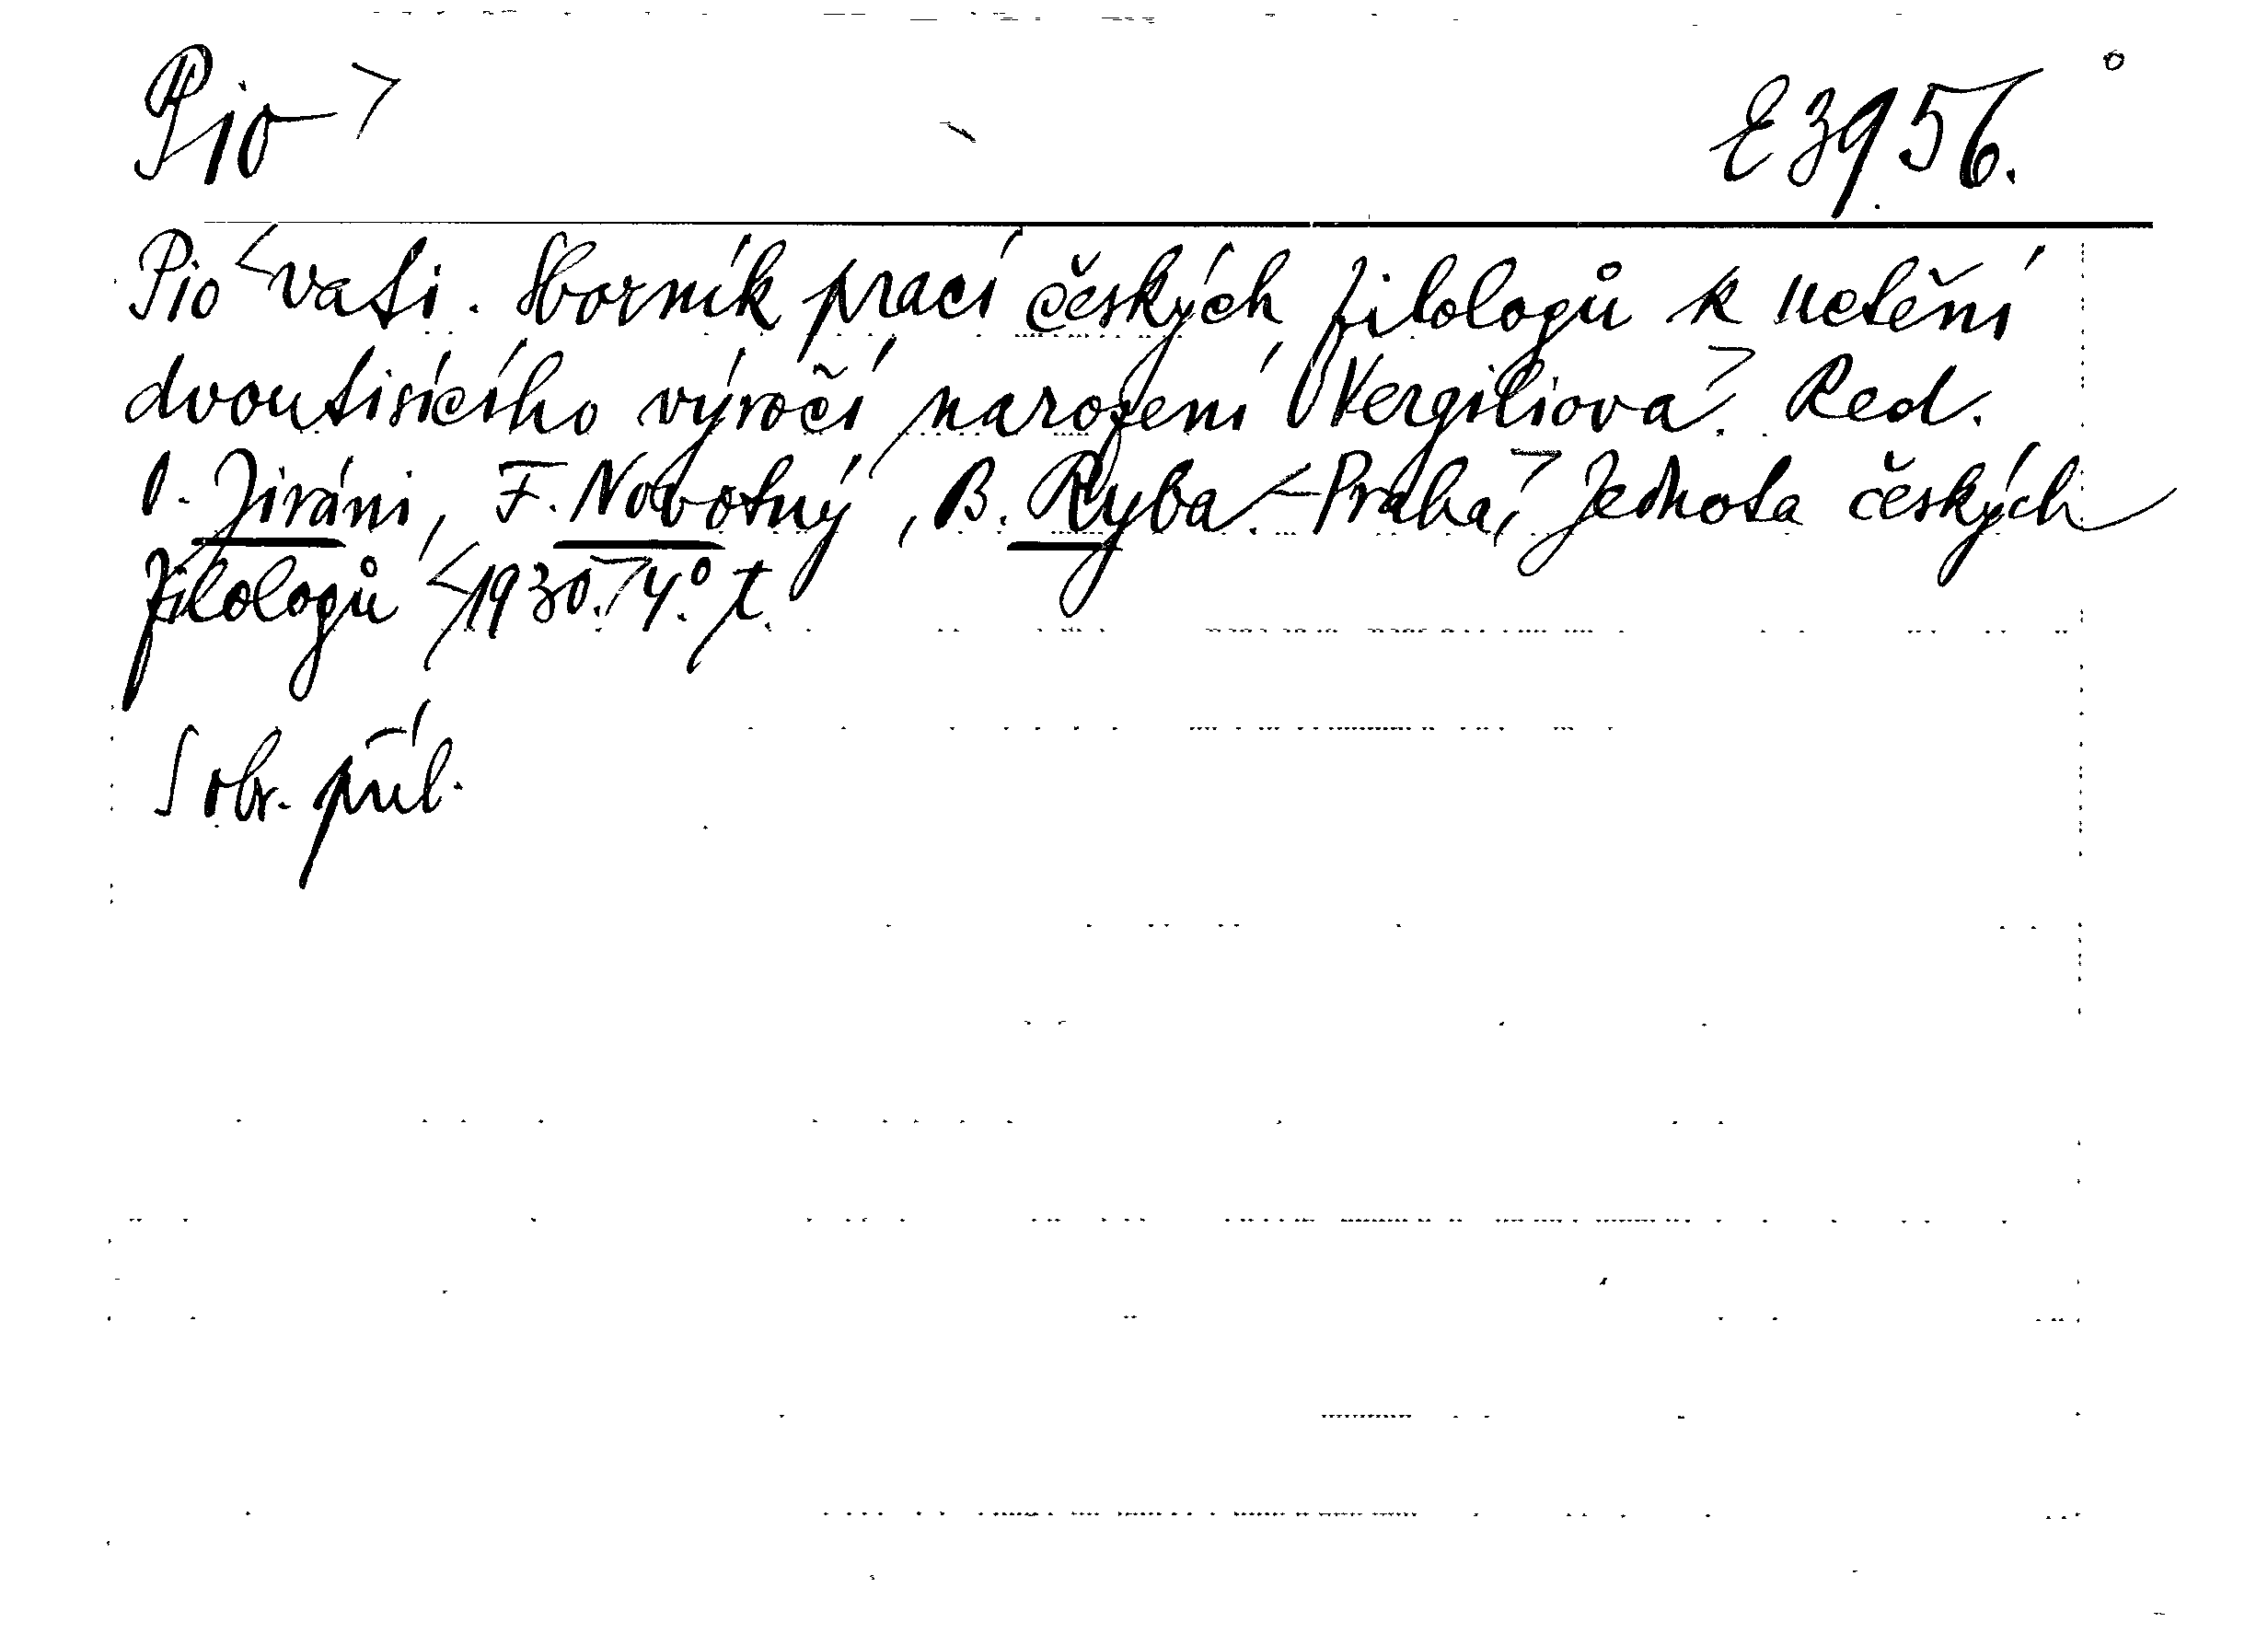 Pio E 3956.
Pio vati. Sborník prací českých filologů k uctění
dvoutisícího výročí narození Vergiliova. Red.
O. Jiráni, F. Novotný, B. Ryba. Praha, Jednota českých
filologů 1930. 4°. t.
S obr. příl.